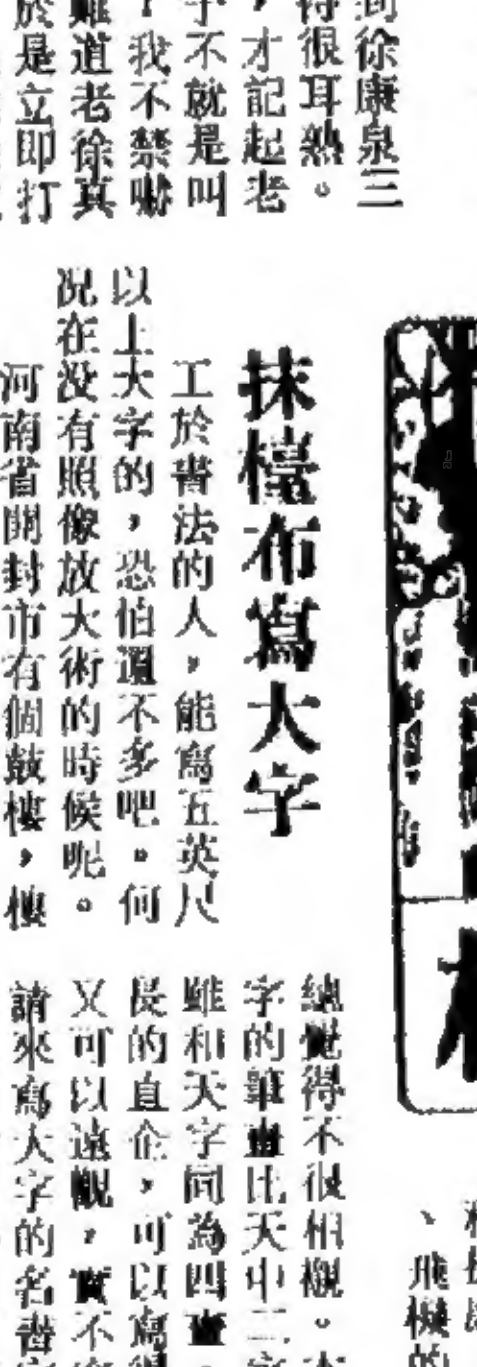 到徐康泉三
得很耳熟。
，才記起老
字不就是叫
？我不禁嚇
難道老徐真
於是立即打
抹檯布寫大字
工於書法的人，能寫五英尺
以上大字的，恐怕還不多吧。何
況在没有照像放大術的時候呢。
河南省開封市有個鼓樓，樓
總覺得不很相襯。
字的筆畫比天中二字
雖和天字同為四畫。
長的直企，可以寫得
又可以遠觀，實不
請來寫大字的名書
、飛機的